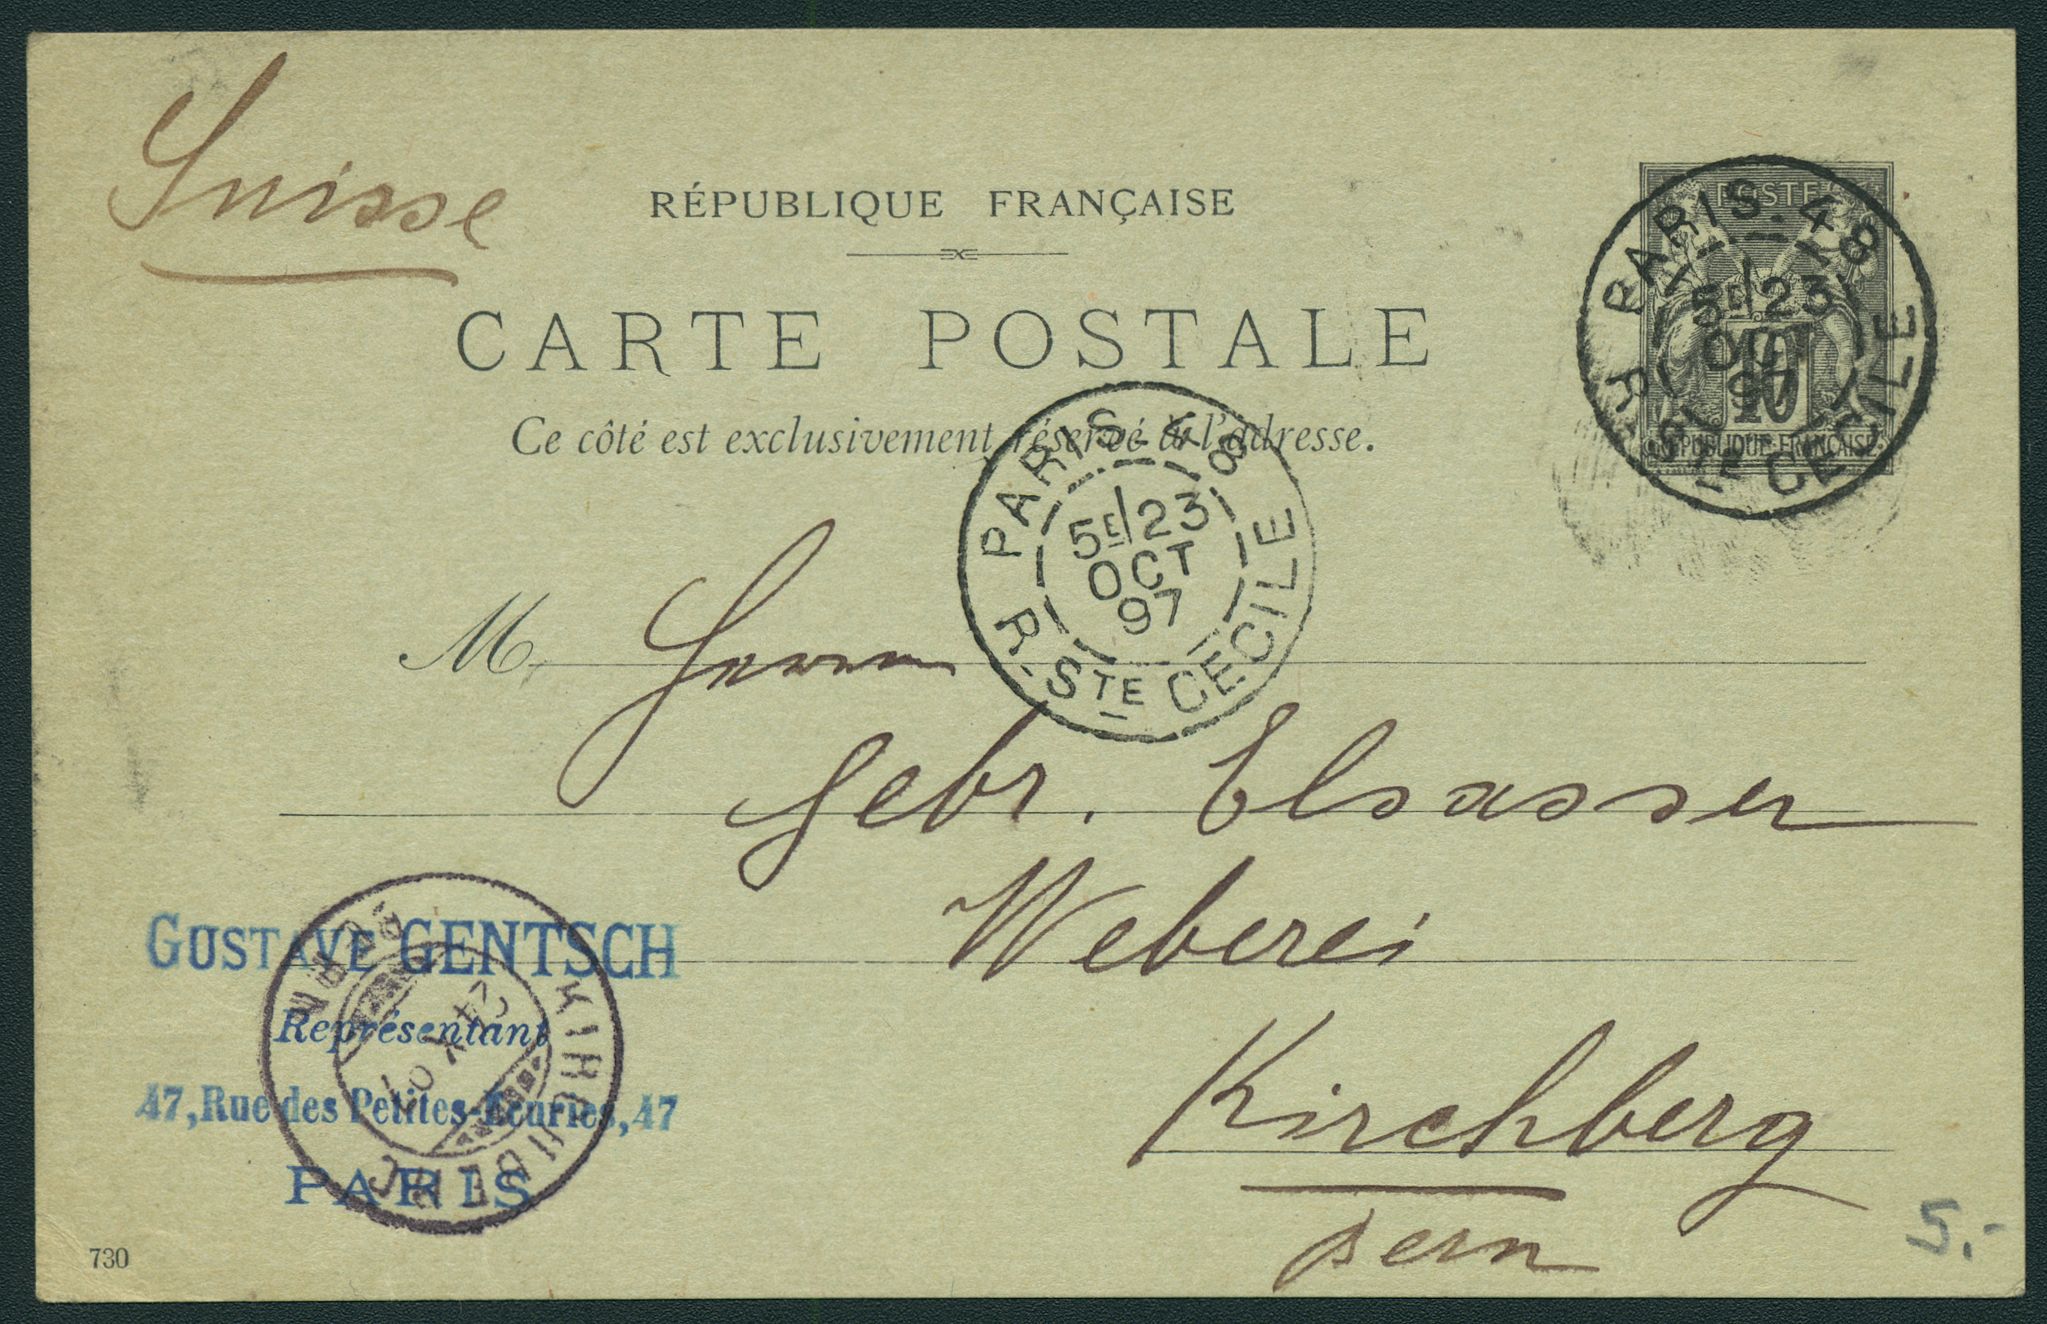 Suisse
RÉPUBLIQUE FRANÇAISE
CARTE POSTALE
Ce côté est exclusivement réservé à l'adresse.
POSTES
10
REPUBLIQUE FRANÇAISE
PARIS. 48
5E/23
OCT
97
R. STE CECILE
PARIS. 48
5E/23
OCT
97
R. STE CECILE
M. Herren
Gebr. Elsasser
Weberei
Kirchberg
Bern
GUSTAVE GENTSCH
Représentant
47, Rue des Petites-Écuries, 47
PARIS
KIRCHBERG
24 X 97
730
5.-